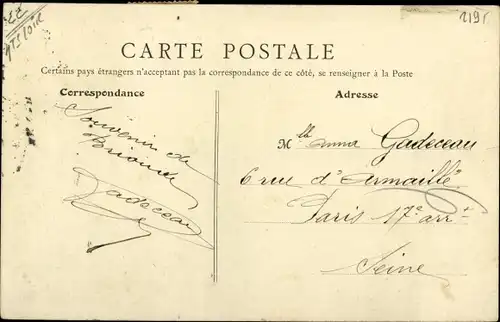 2195
CARTE POSTALE
Certains pays étrangers n'acceptant pas la correspondance de ce côté, se renseigner à la Poste
Correspondance
Adresse
Souvenir de
Gadeceau
Mlle Anna Gadeceau
6 rue d'Armaillé
Paris 17e arrt
Seine